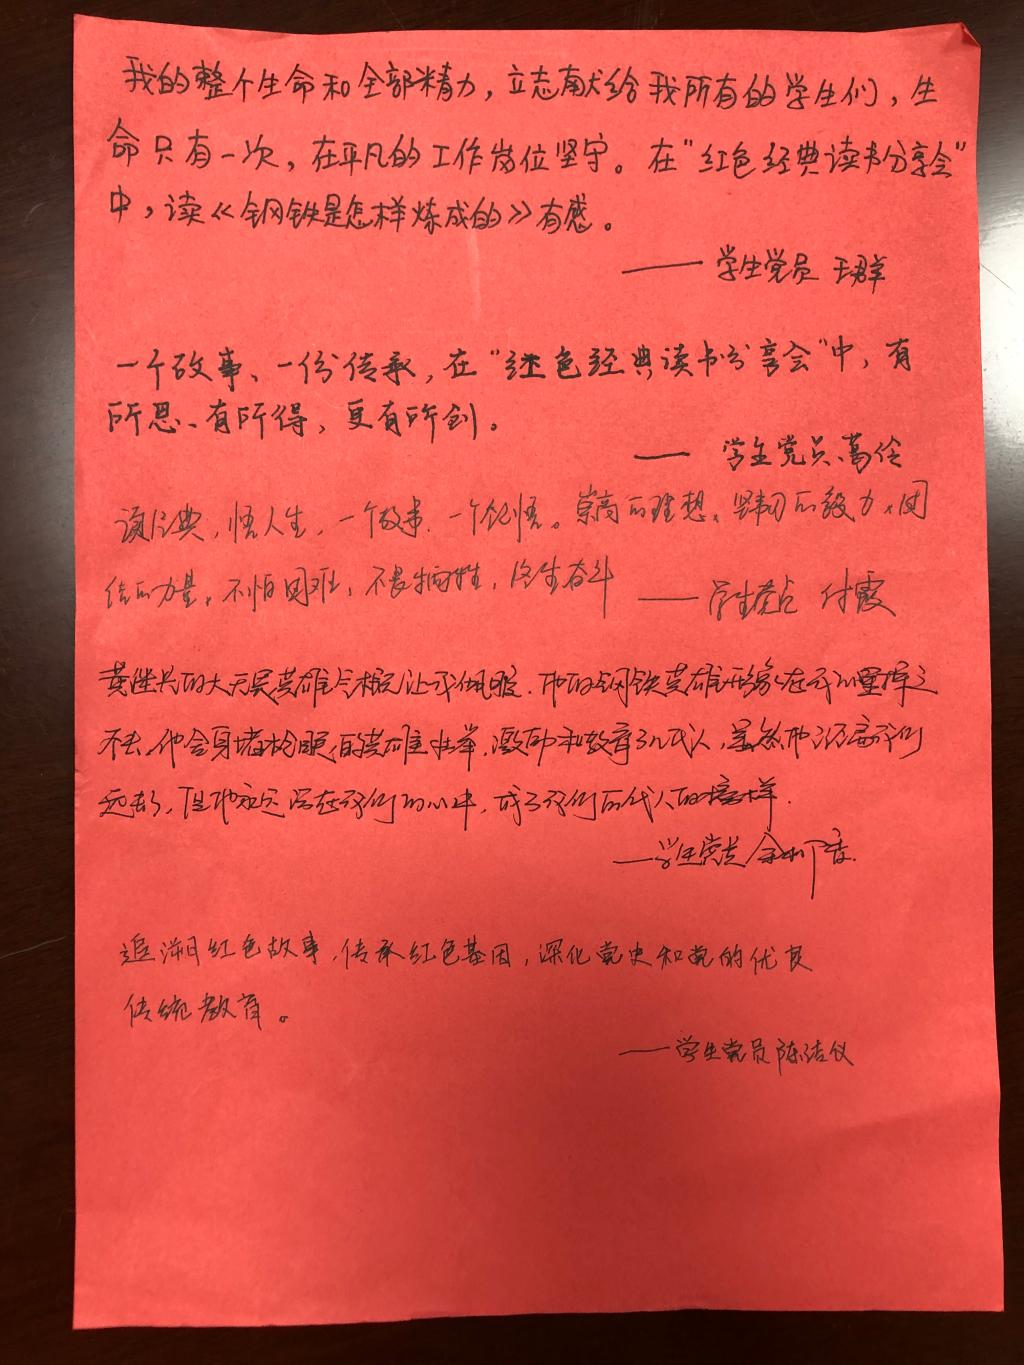 我的整个生命和全部精力，立志献给我所有的学生们，生
命只有一次，在平凡的工作岗位坚守。在“红色经典读书分享会”
中，读《钢铁是怎样炼成的》有感。
——学生党员 王君羊
一个故事、一份传承，在“红色经典读书分享会”中，有
所思、有所得，更有所创。
—— 学生党员、葛伶
读经典，悟人生，一个故事、一个领悟。崇高的理想、坚韧的毅力、团
结的力量。不怕困难，不畏牺牲，终生奋斗
——学生党员 付霞
黄继光的大无畏英雄气概让我佩服，他的钢铁英雄形象在我心里挥之
不去，他舍身堵枪眼的英雄壮举，激励和教育了几代人，虽然他已经离我们
远去了，但他永远活在我们的心中，成了我们后代人的榜样.
——学生党员
追溯红色故事，传承红色基因，深化党史和党的优良
传统教育。
——学生党员 陈洁仪